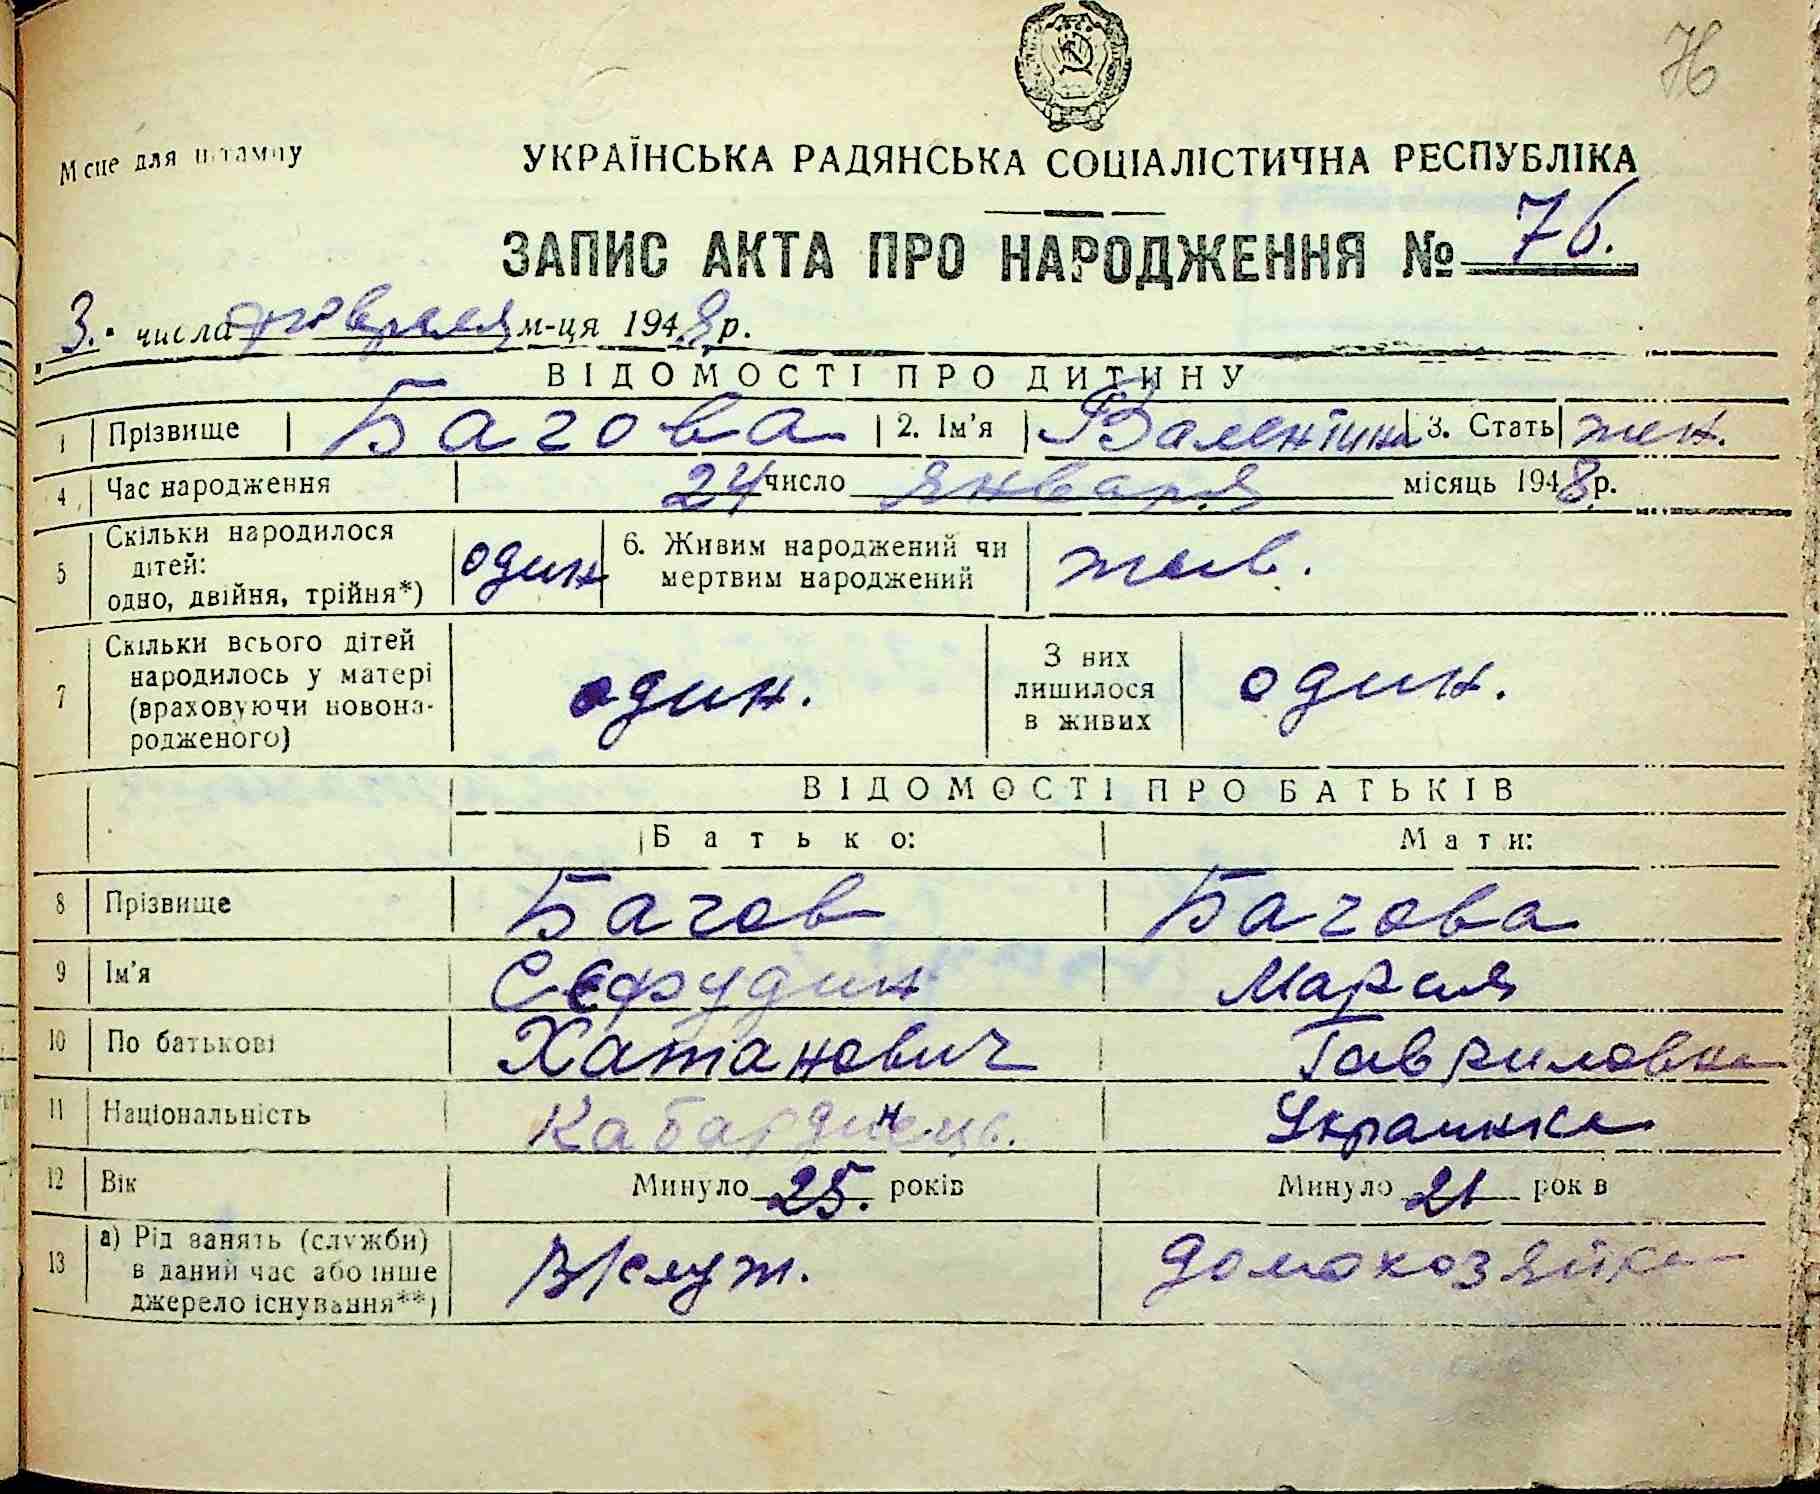 Н
Місце для штампу
УКРАЇНСЬКА РАДЯНСЬКА СОЦІАЛІСТИЧНА РЕСПУБЛІКА
ЗАПИС АКТА ПРО НАРОДЖЕННЯ № 76.
„3.“ числа февраля м-ця 1948 р.
ВІДОМОСТІ ПРО ДИТИНУ
1 Прізвище Багова 2. Ім'я Валентина 3. Стать жен.
4 Час народження 24 число января місяць 1948 р.
5 Скільки народилося дітей: одно, двійня, трійня*) один 6. Живим народжений чи мертвим народжений жив.
7 Скільки всього дітей народилось у матері (враховуючи новонародженого) один. З них лишилося в живих один.
ВІДОМОСТІ ПРО БАТЬКІВ
Батько: Мати:
8 Прізвище Багов Багова
9 Ім'я Сефудин Мария
10 По батькові Хатанович Гавриловна
11 Національність Кабардинець. Украинка
12 Вік Минуло 25. років Минуло 21 років
13 а) Рід занять (служби) в даний час або інше джерело існування**) В/служ. домохозяйка